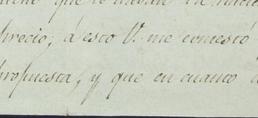 que
precio; á esto V. me contestó
propuesta, y que en cuanto